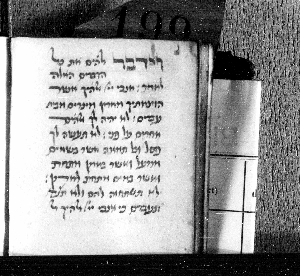 וידבר אלהים את כל
הדברים האלה
לאמר: אנכי ייי אלהיך אשר
הוצאתיך מארץ מצרים מבית
עבדים: לא יהיה לך אלהים
אחרים על פני: לא תעשה לך
פסל וכל תמונה אשר בשמים
ממעל ואשר בארץ מתחת
ואשר במים מתחת לארץ:
לא תשתחוה להם ולא
תעבדם כי אנכי ייי אלהיך